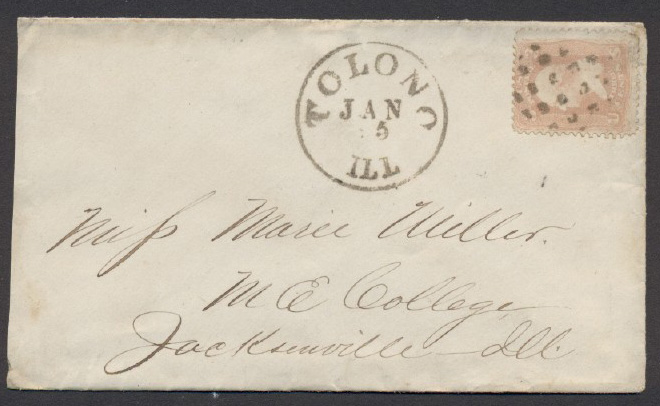 TOLONO
JAN
5
ILL
Miss Marie Miller.
M E College
Jacksonville Ill.